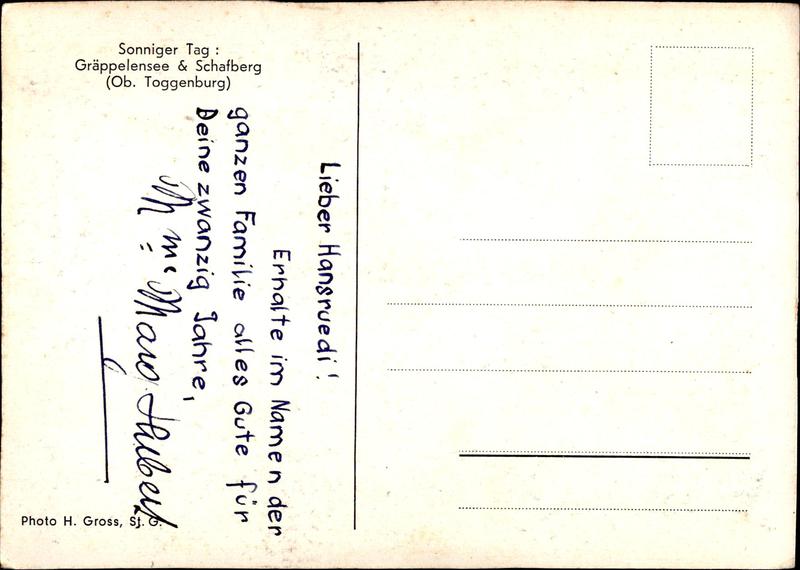 Sonniger Tag :
Gräppelensee & Schafberg
(Ob. Toggenburg)
Lieber Hansruedi!
Erhalte im Namen der
ganzen Familie alles Gute für
Deine zwanzig Jahre,
Huber
Photo H. Gross, St. G.